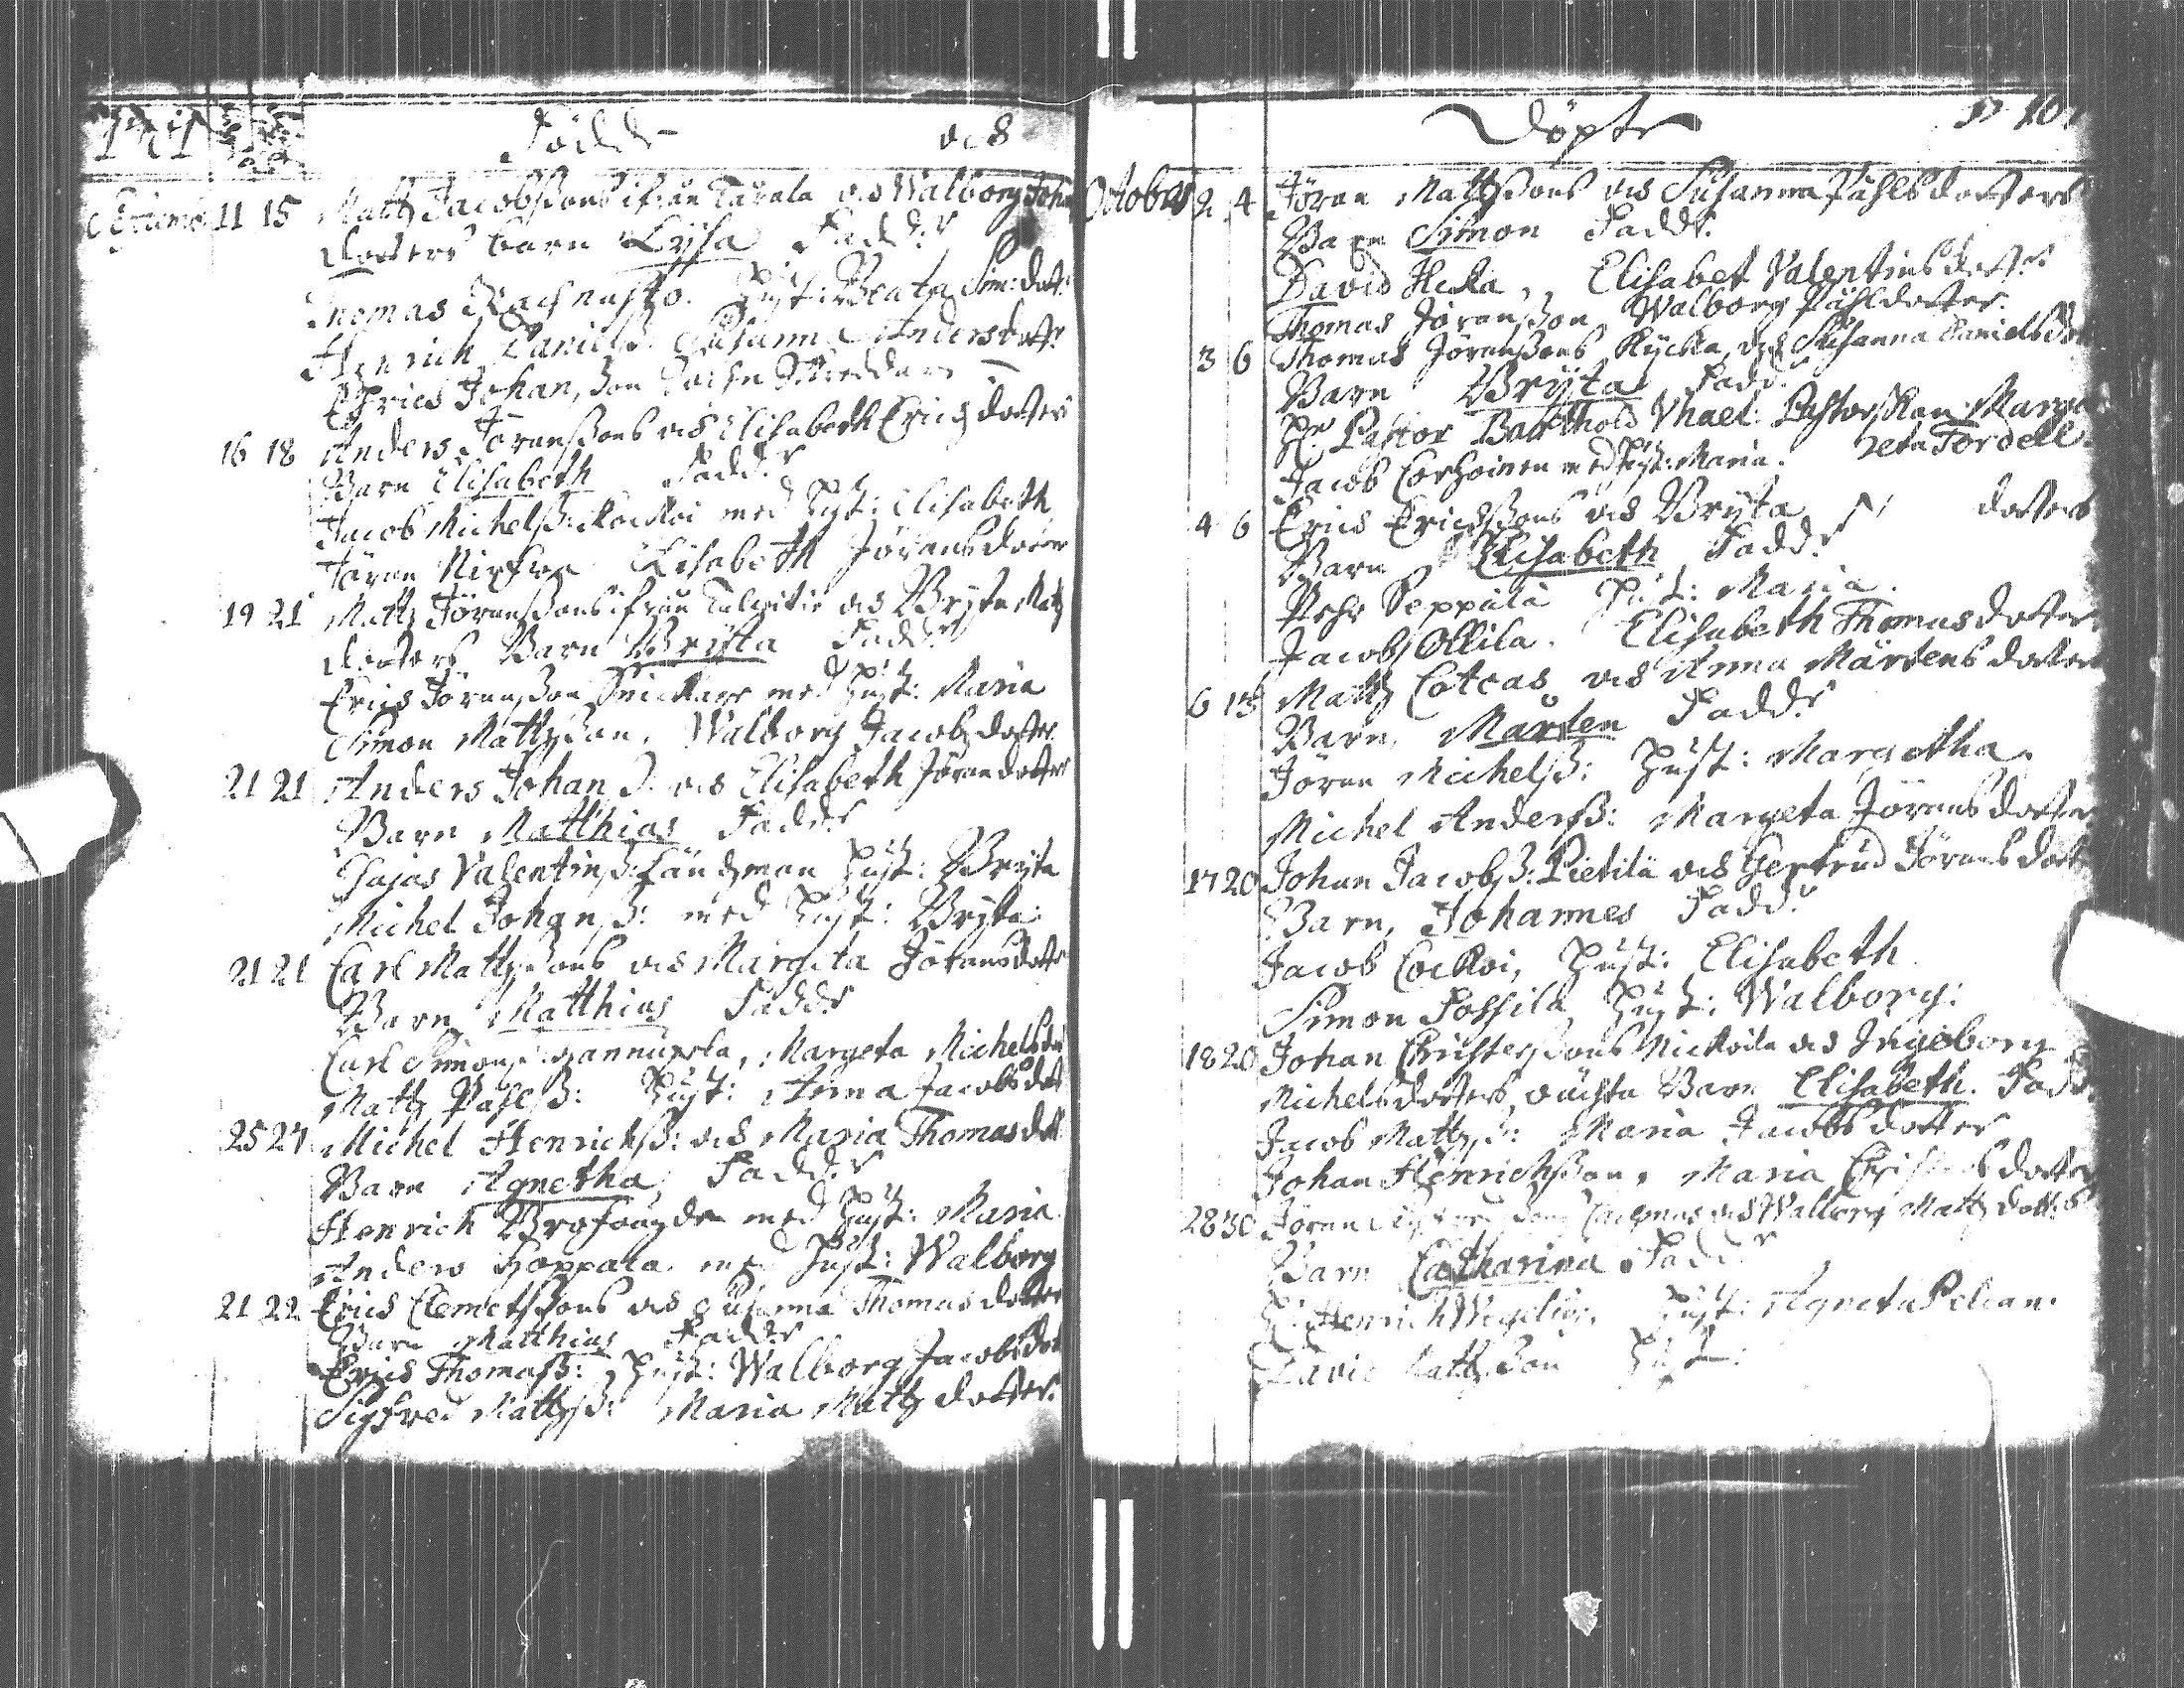 Födde och
11 15 Mattz Jacobssons ifrån Tarala och Walborg Joha
dotters barn Lysa Fadd:r
Thomas Hust: Beata Sim: dott:
Henrich Danielß: Susanna Andersdotter
Erics Johan, Son
16 18 Anders Joranssons och Elisabeth Erichzdotters
Barn Elisabeth Fadd:r
Jacob Michelß: Kockoi med Hust: Elisabeth
Jöran Elisabeth Joransdotter
19 21 Mattz Jöranssons ifrån och Bryta Matz
dotters Barn Brijta Fadd:r
Erics Joransson Snickare med Hust: Maria
Simon Mattzson, Walborg Jacobzdotter
21 21 Anders Johan S. och Elisabeth Joransdotters
Barn Matthias Fadd:r
Esaias Valentinß: Ländzman Hust: Bryta
Michel Johanß: med Hust: Bryta
21 21 Carl Mattzsons och Margeta Joransdotter
Barn Matthias Fadd:r
Carl Simonß: Margeta Michelsdot
Mattz Påhlß: Hust: Anna Jacobsdot
25 27 Michel Henrichß: och Maria Thomasdott
Barn Agnetha, Fadd:r
Henrich Brofougde med Hust: Maria
Anders Hoppala med Hust: Walborg
21 22 Erics Clemetssons och Susanna Thomasdotter
Barn Matthias Fadd:r
Erics Thomaß: Hust: Walborg Jacobsdot
Sigfred Mattzß: Maria Mattzdotter.
Döpte
October 2 4 Jöran Mattzssons och Susanna Påhlsdotters
Barn Simon Fadd:r
David Heka, Elisabet Valentinsdotter
Thomas Joransson Walborg Påhldotter.
3 6 Thomas Joranssons Rycka och Susanna Danielsdot
Barn Bryta Fadd:r
H:r Pastor Barthold Vhael: Pastorskan Marga
Jacob Corhoinen med Hust: Maria. reta Fordell.
4 6 Erics Ericssons och Bryta N dotters
Barn Elisabeth Fadd:r
Pehr Seppälä Hust: Maria.
Jacob Ollila. Elisabeth Thomasdotter.
6 13 Mattz Cotcas och Anna Mårtensdotter
Barn, Mårten Fadd:r
Jöran Michelß: Hust: Margetha.
Michel Anderß: Margeta Joransdotter
17 20 Johan Jacobß: Pietilä och Gertrud Joransdott
Barn, Johannes Fadd:r
Jacob Cockoi, Hust: Elisabeth
Simon Passila Hust: Walborg:
18 20 Johan Christerssons Nickoila och Ingeborg
Michelsdotters, oächta Barn Elisabeth. Fadd.
Jacob Mattzß: Maria Jacobsdotter
Johan Henrichsson, Maria Christersdotter
28 30 Jöran och Walborg Mattzdotters
Barn Catharina Fadd:r
H: Henrich Wegelius. Hust: Agneta Pelcan.
David Mattzson Hust: